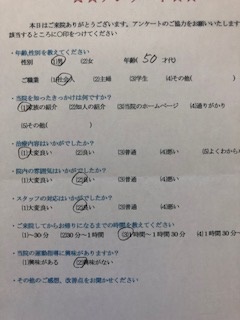 本日はご来院ありがとうございます。アンケートのご協力をお願いいたします
該当するところに〇印をつけてください
・年齢,性別を教えてください
性別 (1)男 (2)女 年齢( 50 才代)
ご職業 (1)社会人 (2)主婦 (3)学生 (4)その他(
・当院を知ったきっかけは何ですか?
(1)家族の紹介 (2)知人の紹介 (3)当院のホームページ (4)通りがかり
(5)その他( )
・治療内容はいかがでしたか?
(1)大変良い (2)良い (3)普通 (4)悪い (5)よくわから
・院内の雰囲気はいかがでしたか?
(1)大変良い (2)良い (3)普通 (4)悪い
・スタッフの対応はいかがでしたか?
(1)大変良い (2)良い (3)普通 (4)悪い
・ご来院してからお帰りになるまでの時間を教えてください
(1)~30分 (2)30分~1時間 (3)1時間~1時間30分 (4)1時間3
・当院の運動指導に興味がありますか?
(1)興味がある (2)興味がない
・その他のご感想、改善点をお聞かせください